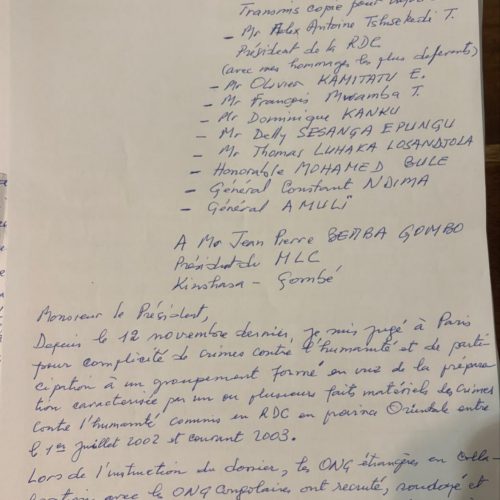 Transmis copie pour
- Mr Felix Antoine Tshisekedi T.
Président de la RDC
(avec mes hommages les plus déférents)
- Mr Olivier KAMITATU E.
- Mr François Muamba T.
- Mr Dominique KANKU
- Mr Delly SESANGA EPUNGU
- Mr Thomas LUHAKA LOSANDJOLA
- Honorable MOHAMED BULE
- Général Constant NDIMA
- Général AMULI
A Mr Jean Pierre BEMBA GOMBO
Président du MLC
Kinshasa - Gombé
Monsieur le Président,
Depuis le 12 novembre dernier, je suis jugé à Paris
pour complicité de crimes contre l'humanité et de parti
cipation à un groupement formé en vue de la prépara
tion caractérisée par un ou plusieurs faits matériels des crimes
contre l'humanité commis en RDC en province Orientale entre
le 1er Juillet 2002 et courant 2003.
Lors de l'instruction du dossier, les ONG étrangères en colla
boration avec les ONG congolaises ont recruté, soudoyé et